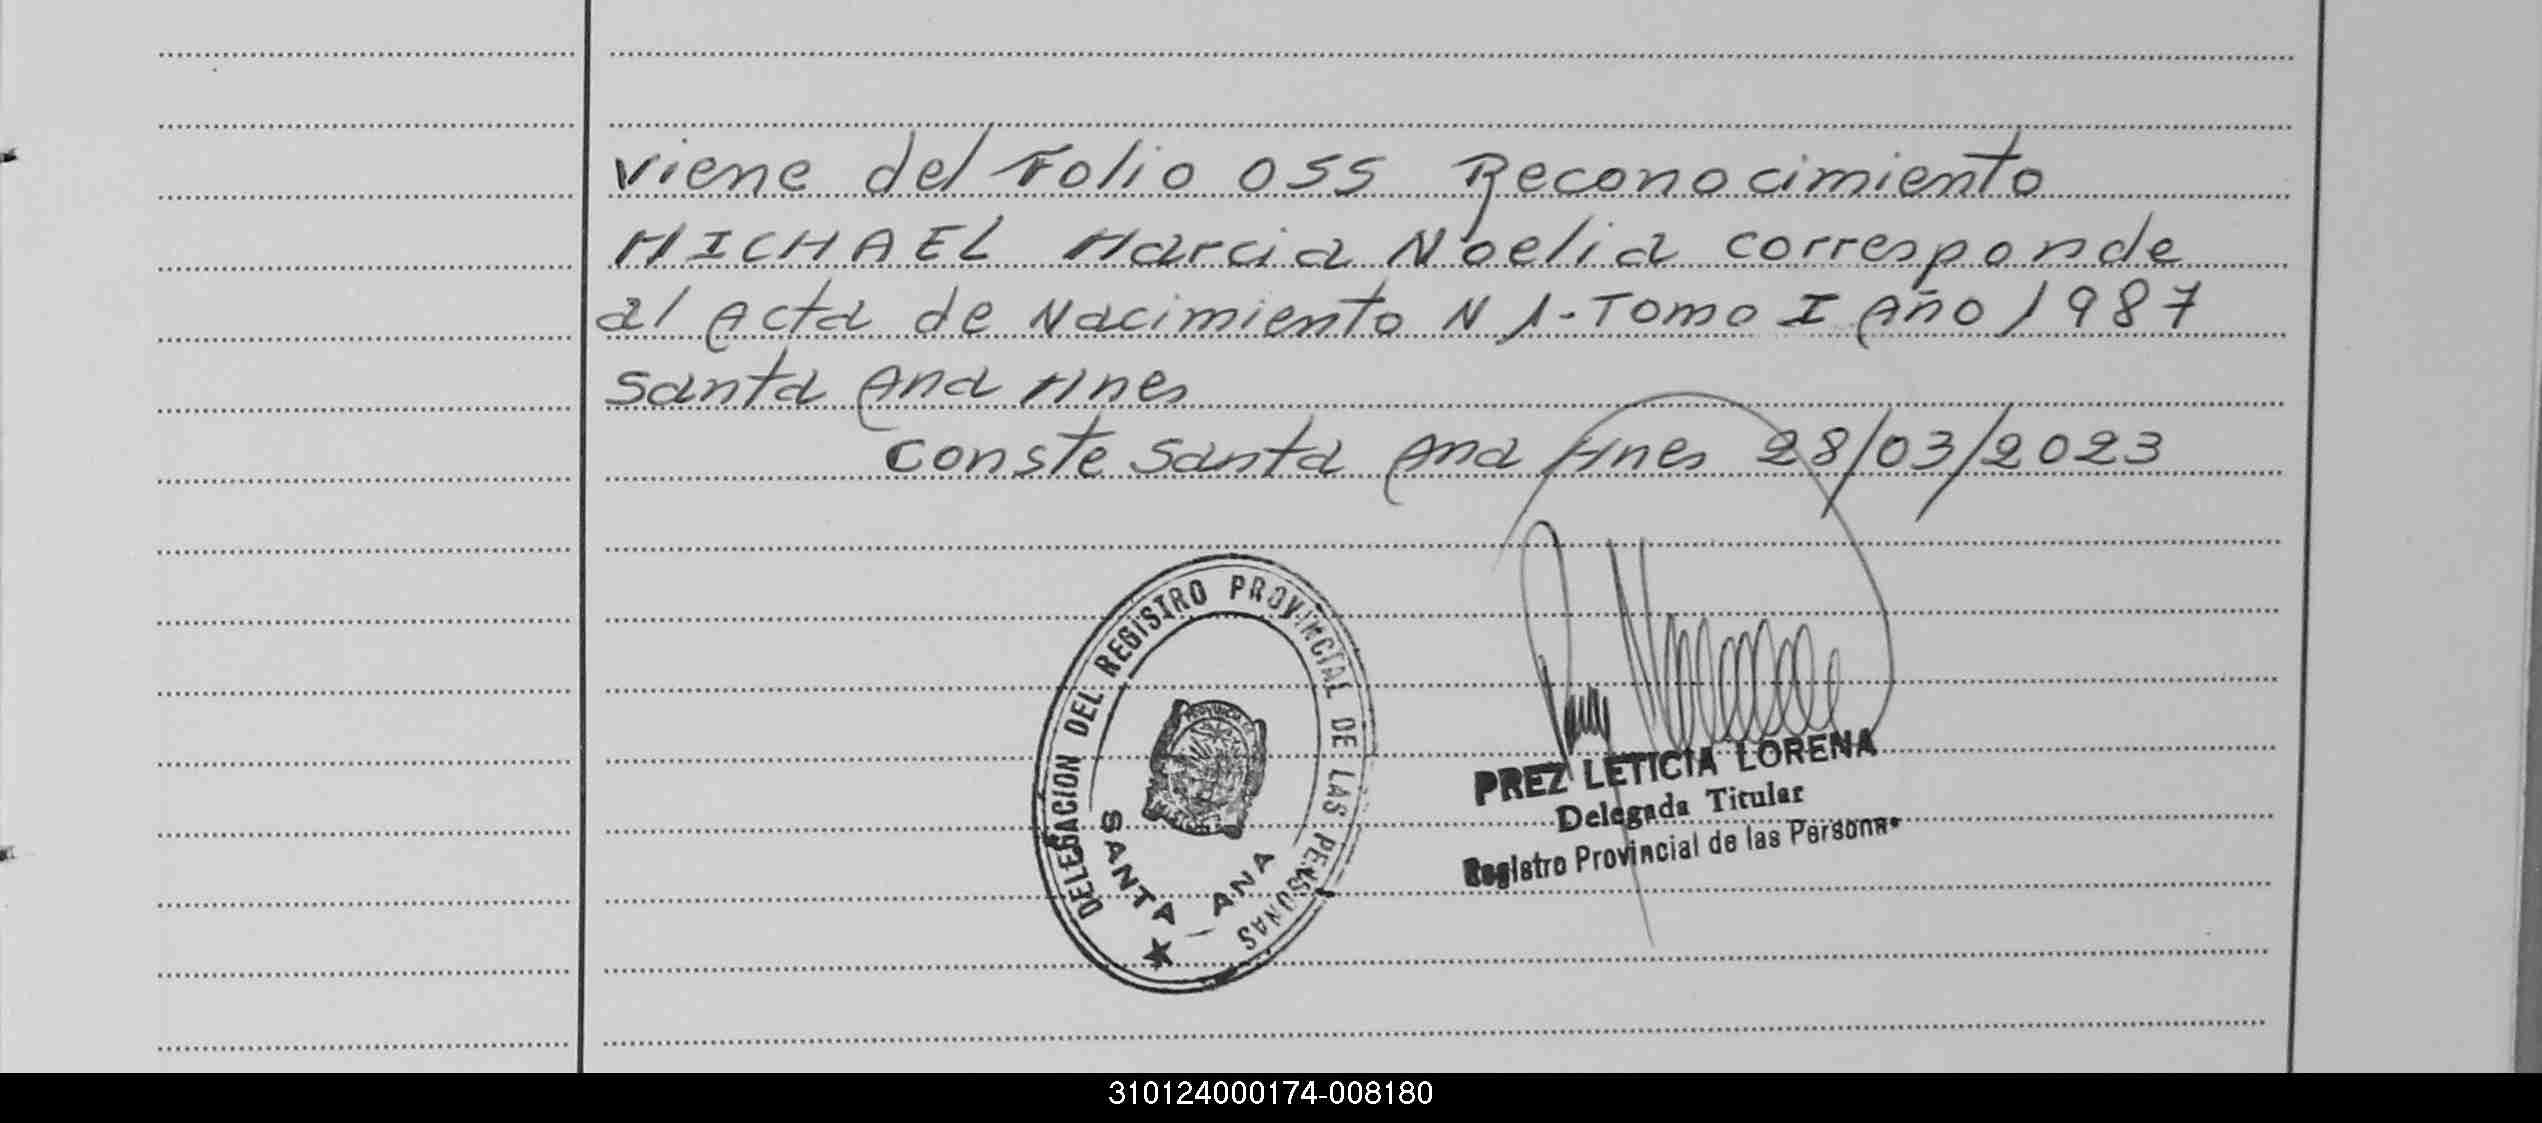 Viene del Folio 055 Reconocimiento
MICHAEL Marcia Noelia corresponde
al Acta de Nacimiento N 1-Tomo I Año 1987
Santa Ana Mnes
Conste Santa Ana Mnes 28/03/2023
DELEGACION DEL REGISTRO PROVINCIAL DE LAS PERSONAS
SANTA ANA
PREZ LETICIA LORENA
Delegada Titular
Registro Provincial de las Personas
310124000174-008180